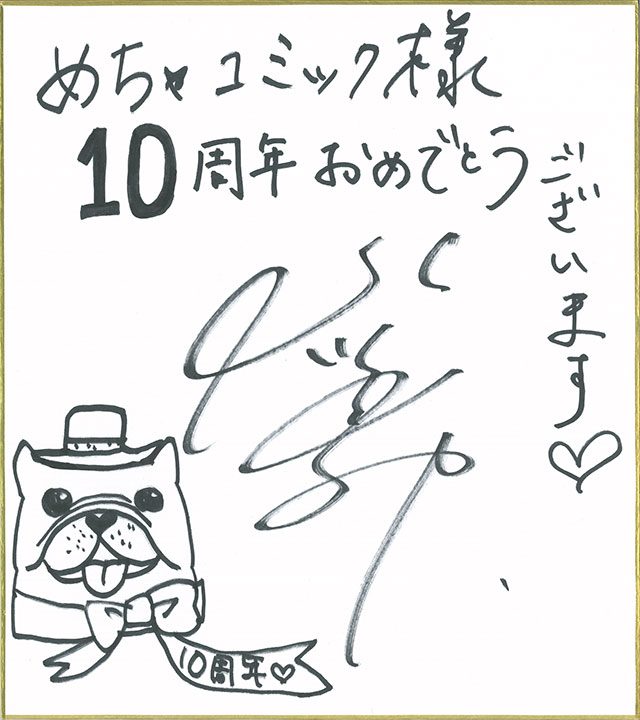 めちゃコミック様
10周年おめでとう
ございます♡
10周年♡